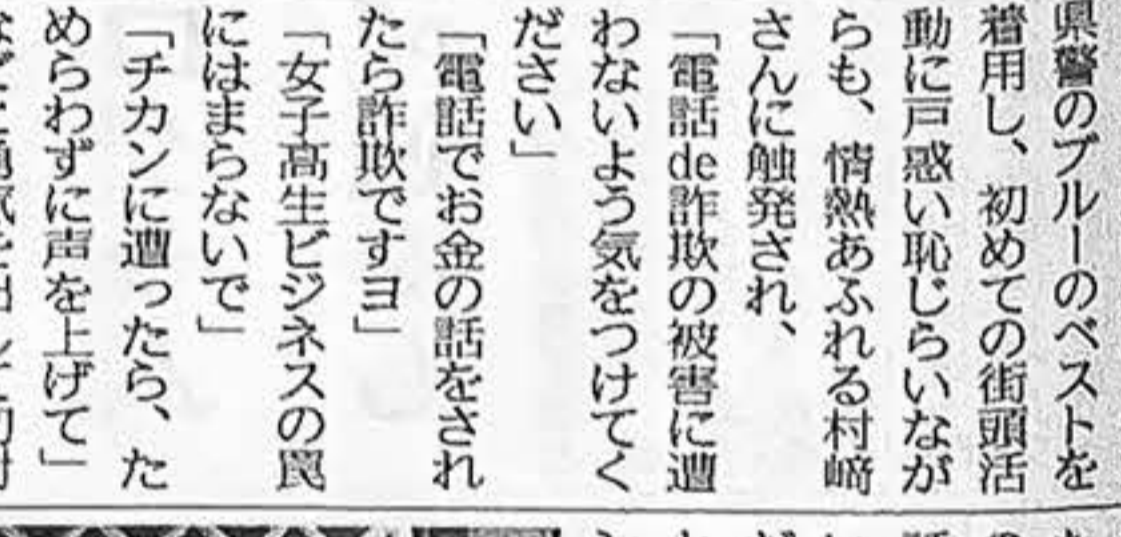 県警のブルーのベストを
着用し、初めての街頭活
動に戸惑い恥じらいなが
らも、情熱あふれる村﨑
さんに触発され、
「電話de詐欺の被害に遭
わないよう気をつけてく
ださい」
「電話でお金の話をされ
たら詐欺ですヨ」
「女子高生ビジネスの罠
にはまらないで」
「チカンに遭ったら、た
めらわずに声を上げて」